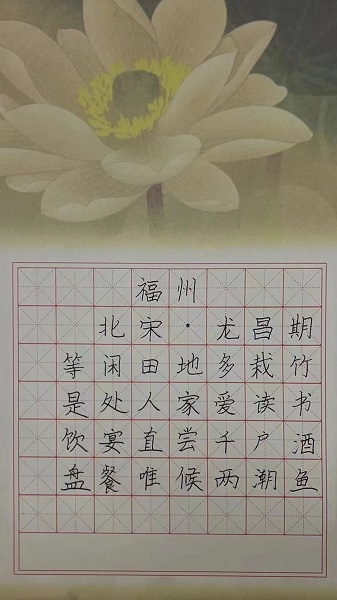 福州
北宋·龙昌期
等闲田地多栽竹
是处人家爱读书
饮宴直尝千户酒
盘餐唯候两潮鱼